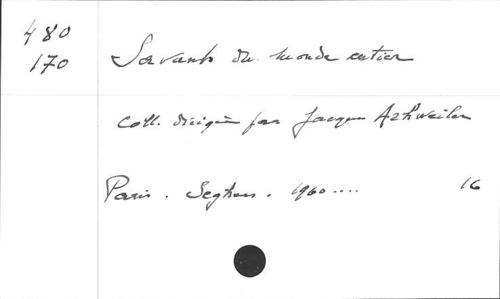 480
170
Savants du monde entier
Coll. dirigée par Jacques Ahrweiler
Paris. Seghers. 1960....
16